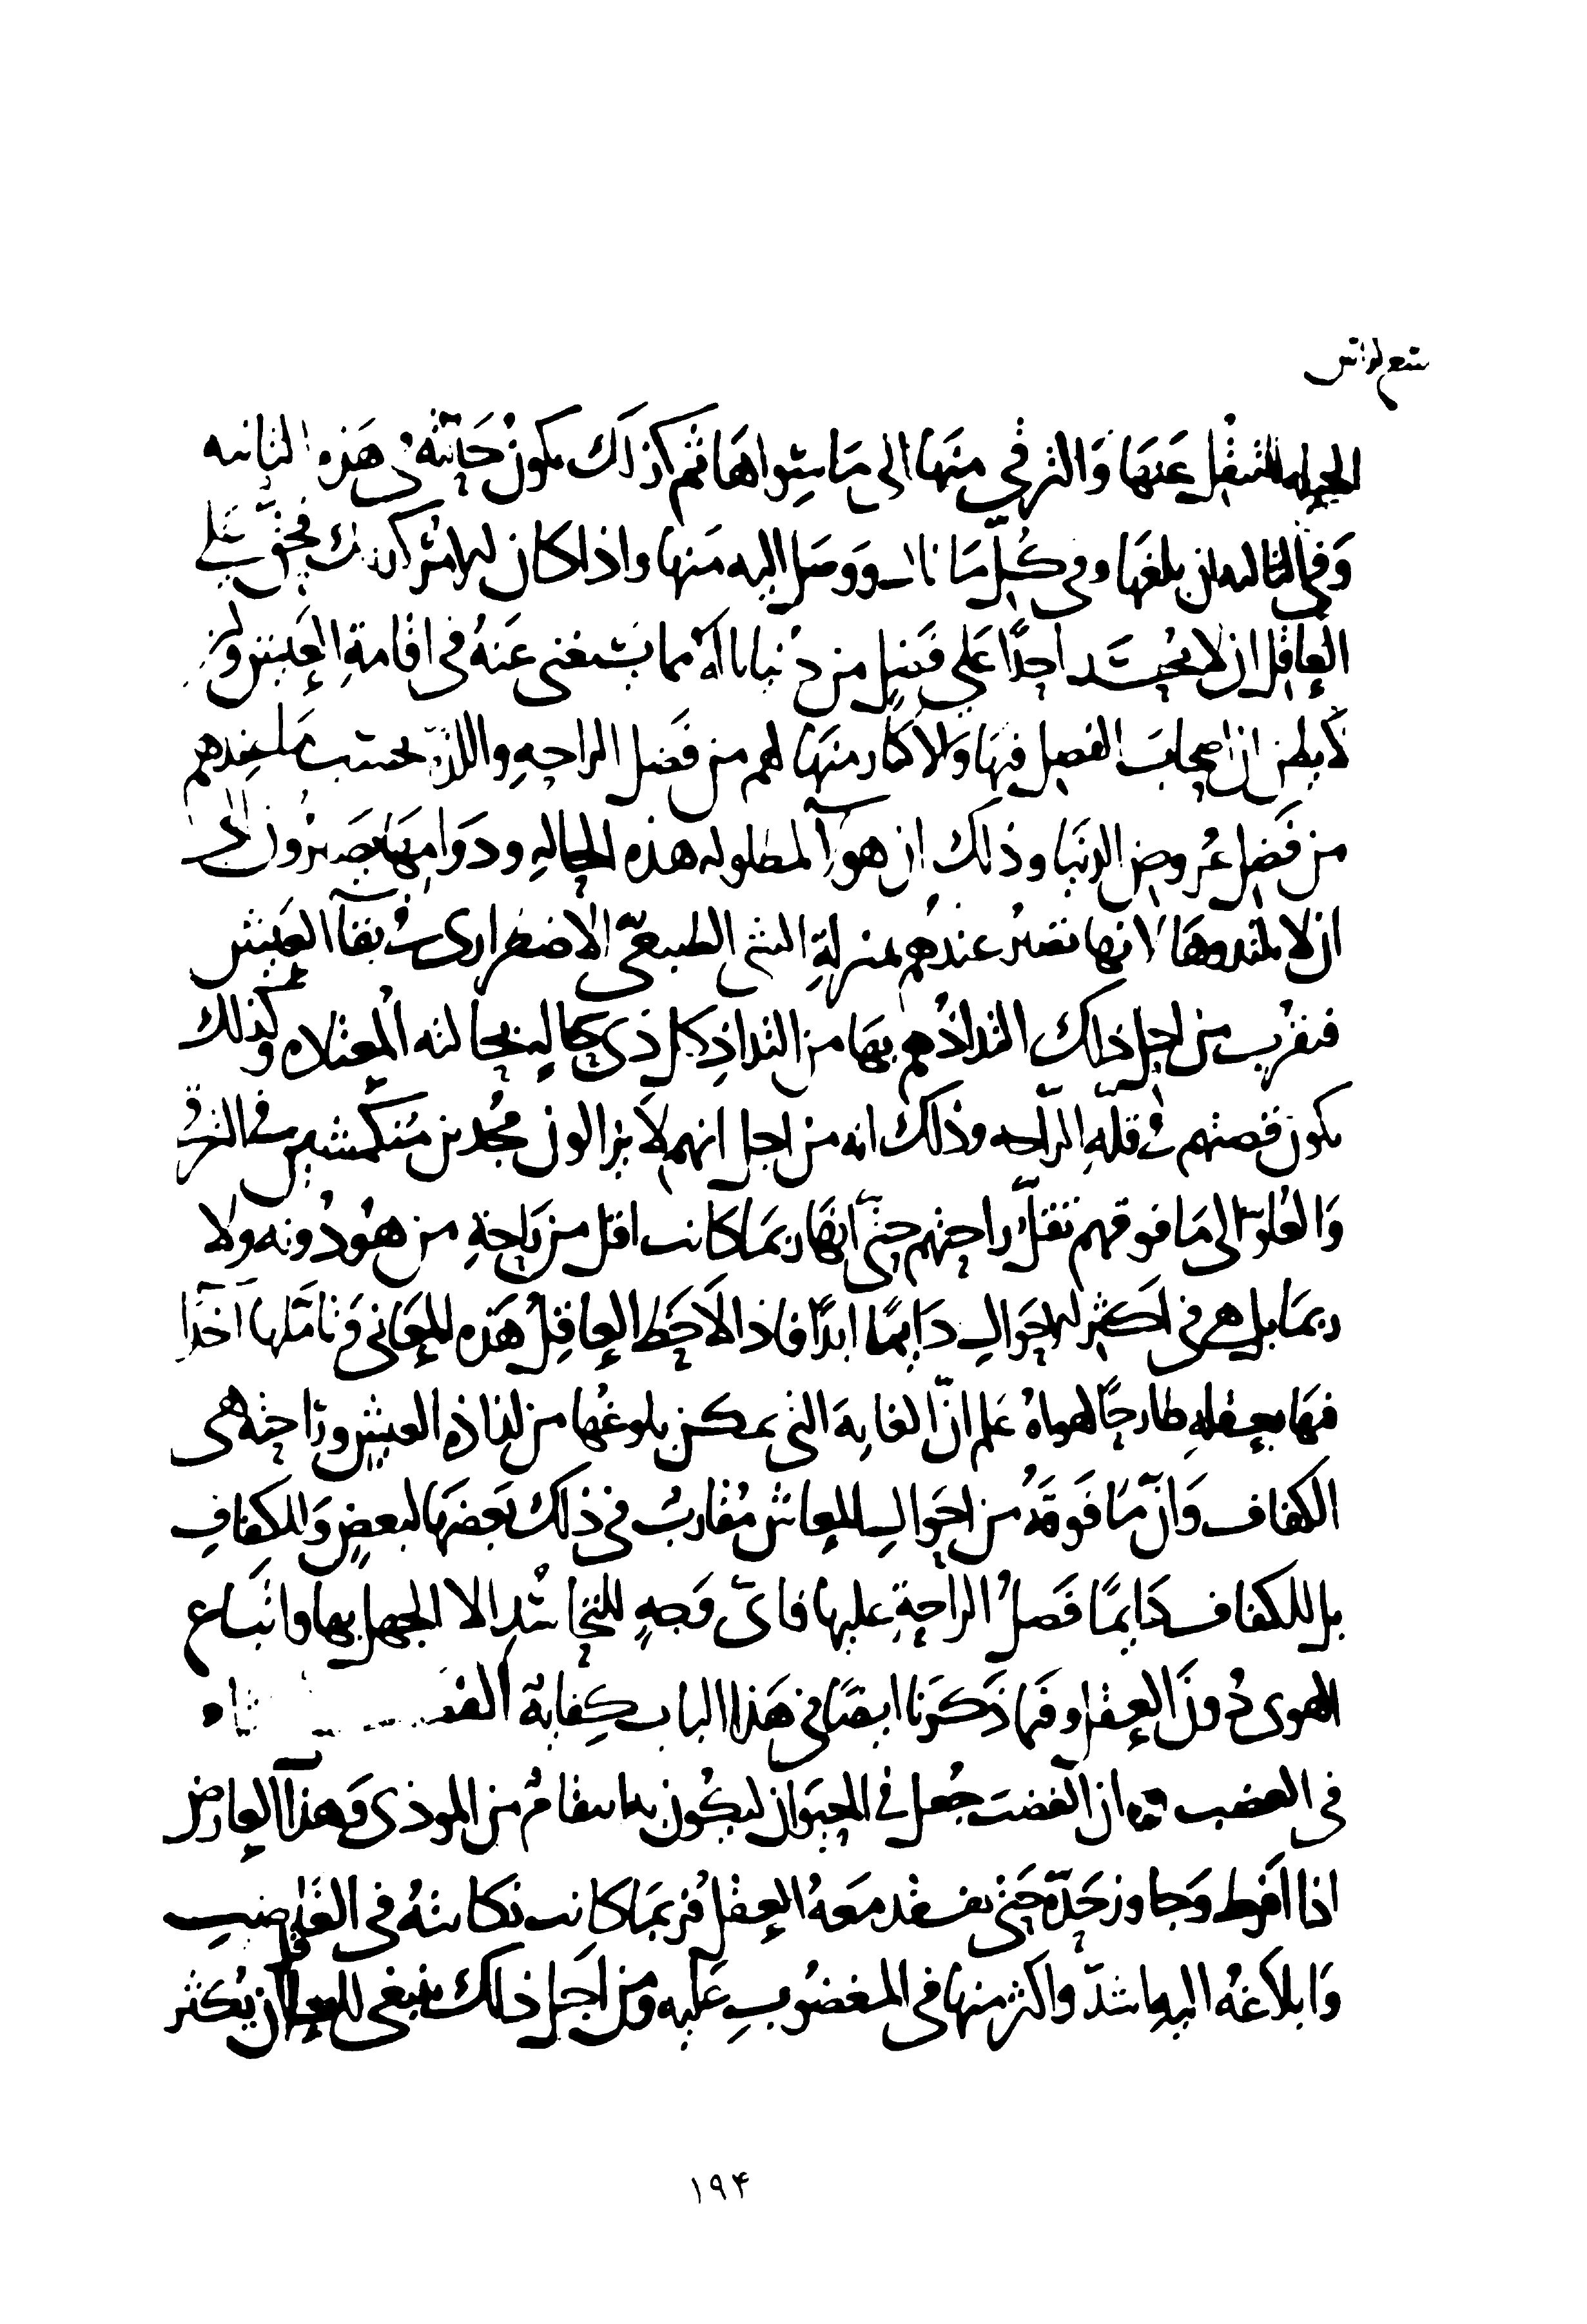 الحياه للتنقل عنها والترقي منها الى ما سواها ثم كذلك يكون حالته في هذه الثانيه
وفي الثالثه ان بلغها وفي كل ما ناله ووصل اليه منها واذا كان الامر كذلك فحق على
العاقل ان لا يحسد احدا على فضل من دنيا ناله مما يستغنى عنه في اقامة العيش ولن
لا يظن ان اصحاب الفضل فيها والاكثار منها لهم من فضل الراحه واللذه بحسب ما عندهم
من فضل عروض الدنيا وذلك ان هؤلآ لمطاوله هذه الحاله ودوامها يصيرون الى
ان لا يلتذوها لانها تصير عندهم بمنزلة الشئ الطبيعي الاضطرارى في بقآ العيش
فتقرب من اجل ذلك التذاذهم بها من التذاذ كل ذي حال بحالته المعتاده وكذلك
تكون قصتهم في قلة الراحه وذلك انه من اجل انهم لا يزالون مجدين منكمشين في الترقي
والعلو الى ما فوقهم تقل راحتهم حتى انها ربما كانت اقل من راحة من هو دونه ولا
ربما بل هي في اكثر الاحوال دائما ابدا فاذا لاحظ العاقل هذه المعانى وتاملها آخذا
فيها بعقله طارحا لهواه علم ان الغاية التى يمكن بلوغها من لذاذة العيش وراحته هى
الكفاف وان ما فوقه من احوال المعاش مقارب في ذلك بعضها لبعض وللكفاف
بل للكفاف دائما فضل الراحة عليها فاى وجه للتحاسد الا الجهل بها واتباع
الهوى دون العقل وفيما ذكرنا ايضا في هذا الباب كفاية
في الغضب ان الغضب جعل في الحيوان ليكون به انتقام من الموذى وهذا العارض
اذا افرط وجاوز حده حتى يفقد معه العقل فربما كانت نكايته في الغاضب
وابلاغه اليه اشد واكثر منها في المغضوب عليه ومن اجل ذلك ينبغى للعاقل ان يكثر
١٩۴